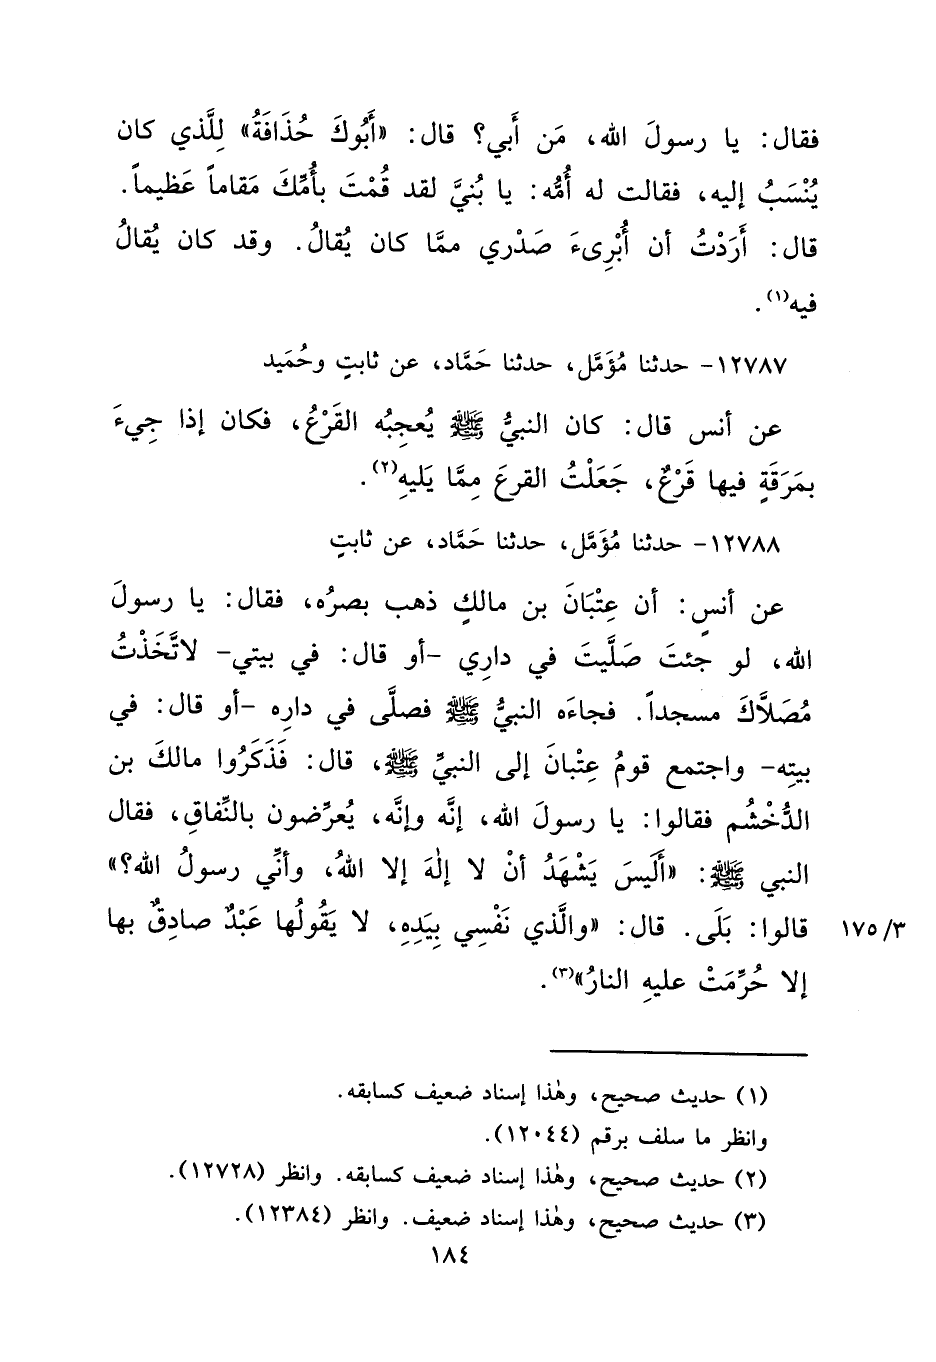 فقال: يا رسولَ الله، مَن أَبي؟ قال: «أَبُوكَ حُذَافَةُ» لِلَّذي كان
يُنْسَبُ إليه، فقالت له أُمُّه: يا بُنيَّ لقد قُمْتَ بأُمِّكَ مَقاماً عَظيماً.
قال: أَرَدْتُ أن أُبْرِىءَ صَدْري ممَّا كان يُقالُ. وقد كان يُقالُ
فيه(١).
١٢٧٨٧- حدثنا مُؤَمَّل، حدثنا حَمَّاد، عن ثابتٍ وحُمَيد
عن أنس قال: كان النبيُّ ﷺ يُعجِبُه القَرْعُ، فكان إذا جِيءَ
بمَرَقَةٍ فيها قَرْعٌ، جَعَلْتُ القرعَ مِمَّا يَليهِ(٢).
١٢٧٨٨- حدثنا مُؤَمَّل، حدثنا حَمَّاد، عن ثابتٍ
عن أنسٍ: أن عِتْبَانَ بن مالكٍ ذهب بصرُه، فقال: يا رسولَ
الله، لو جئتَ صَلَّيتَ في دارِي -أو قال: في بيتي- لاتَّخَذْتُ
مُصَلاَّكَ مسجداً. فجاءَه النبيُّ ﷺ فصلَّى في دارِه -أو قال: في
بيتِه- واجتمع قومُ عِتْبانَ إلى النبيِّ ﷺ، قال: فَذَكَرُوا مالكَ بن
الدُّخْشُم فقالوا: يا رسولَ الله، إنَّه وإنَّه، يُعرِّضون بالنِّفاقِ، فقال
النبي ﷺ: «أَلَيسَ يَشْهَدُ أنْ لا إلٰهَ إلا اللهُ، وأنِّي رسولُ الله؟»
قالوا: بَلَى. قال: «والَّذي نَفْسِي بِيَدِهِ، لا يَقُولُها عَبْدٌ صادِقٌ بها
١٧٥/٣
إلا حُرِّمَتْ عليهِ النارُ»(٣).
(١) حديث صحيح، وهٰذا إسناد ضعيف كسابقه.
وانظر ما سلف برقم (١٢٠٤٤).
(٢) حديث صحيح، وهٰذا إسناد ضعيف كسابقه. وانظر (١٢٧٢٨).
(٣) حديث صحيح، وهٰذا إسناد ضعيف. وانظر (١٢٣٨٤).
١٨٤